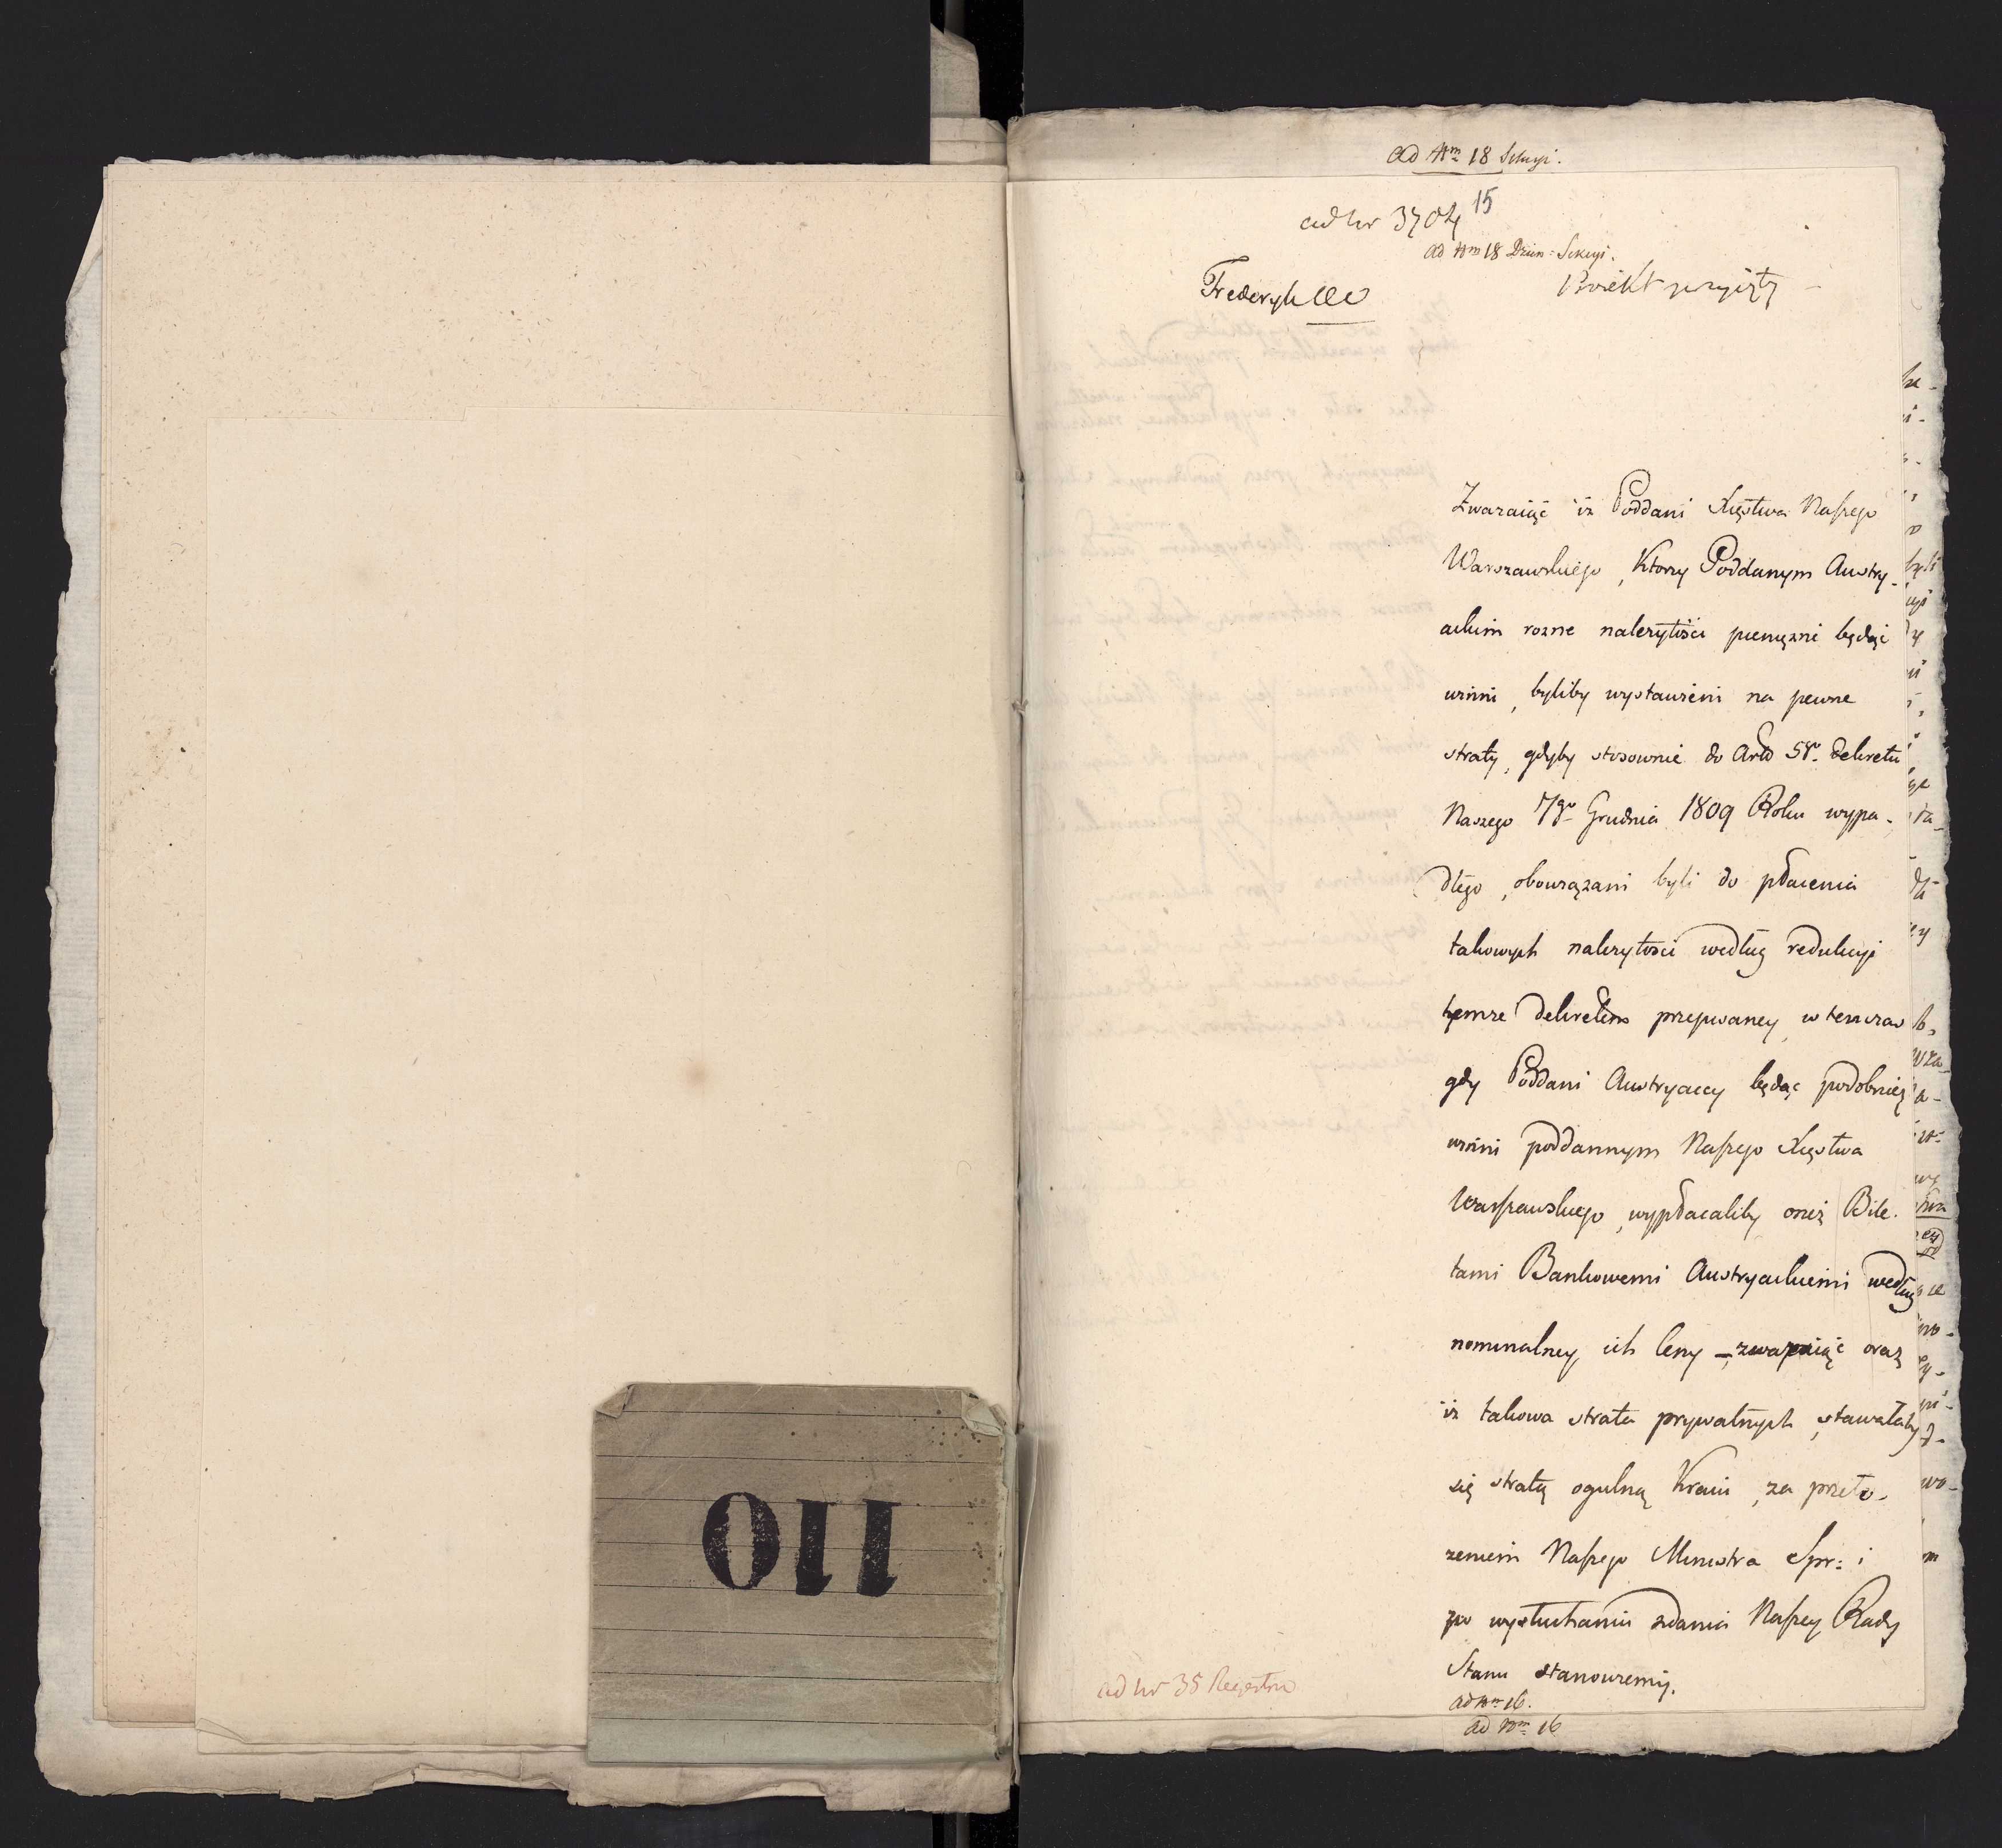 110
ad Nm 18 Sekcyi.
15
ad Nr 3704
ad Nm 18 Dzien: Sekcyi.
Fryderyk
Proiekt przyięty
Zwazaiąc iz Poddani Xięstwa Naszego
Warszawskiego, Ktorzy Poddanym Austry-
ackim rozne nalezytości pieniężne będąc
winni, byliby wystawieni na pewne
straty, gdyby stosownie do Artu 5go dekretu
Naszego 7go Grudnia 1809 Roku wypa-
dłego, obowiązani byli do płacenia
takowych nalezytości według redukcyi
temze dekretem przepisaney, w tenczas
gdy Poddani Austryaccy będąc podobnież
winni poddannym Naszego Xięstwa
Warszawskiego, wypłacaliby oneż Bile-
tami Bankowemi Austryackiemi według
nominalney ich Ceny – zwazaiąc oraz
iz takowa strata prywatnych, stawałaby
się stratą ogulną Kraiu, za przeło-
zeniem Naszego Ministra Spr: i
po wysłuchaniu zdania Naszey Rady
Stanu stanowiemy.
ad Nm 16.
ad Nm 16
ad Nr 35 Regestru